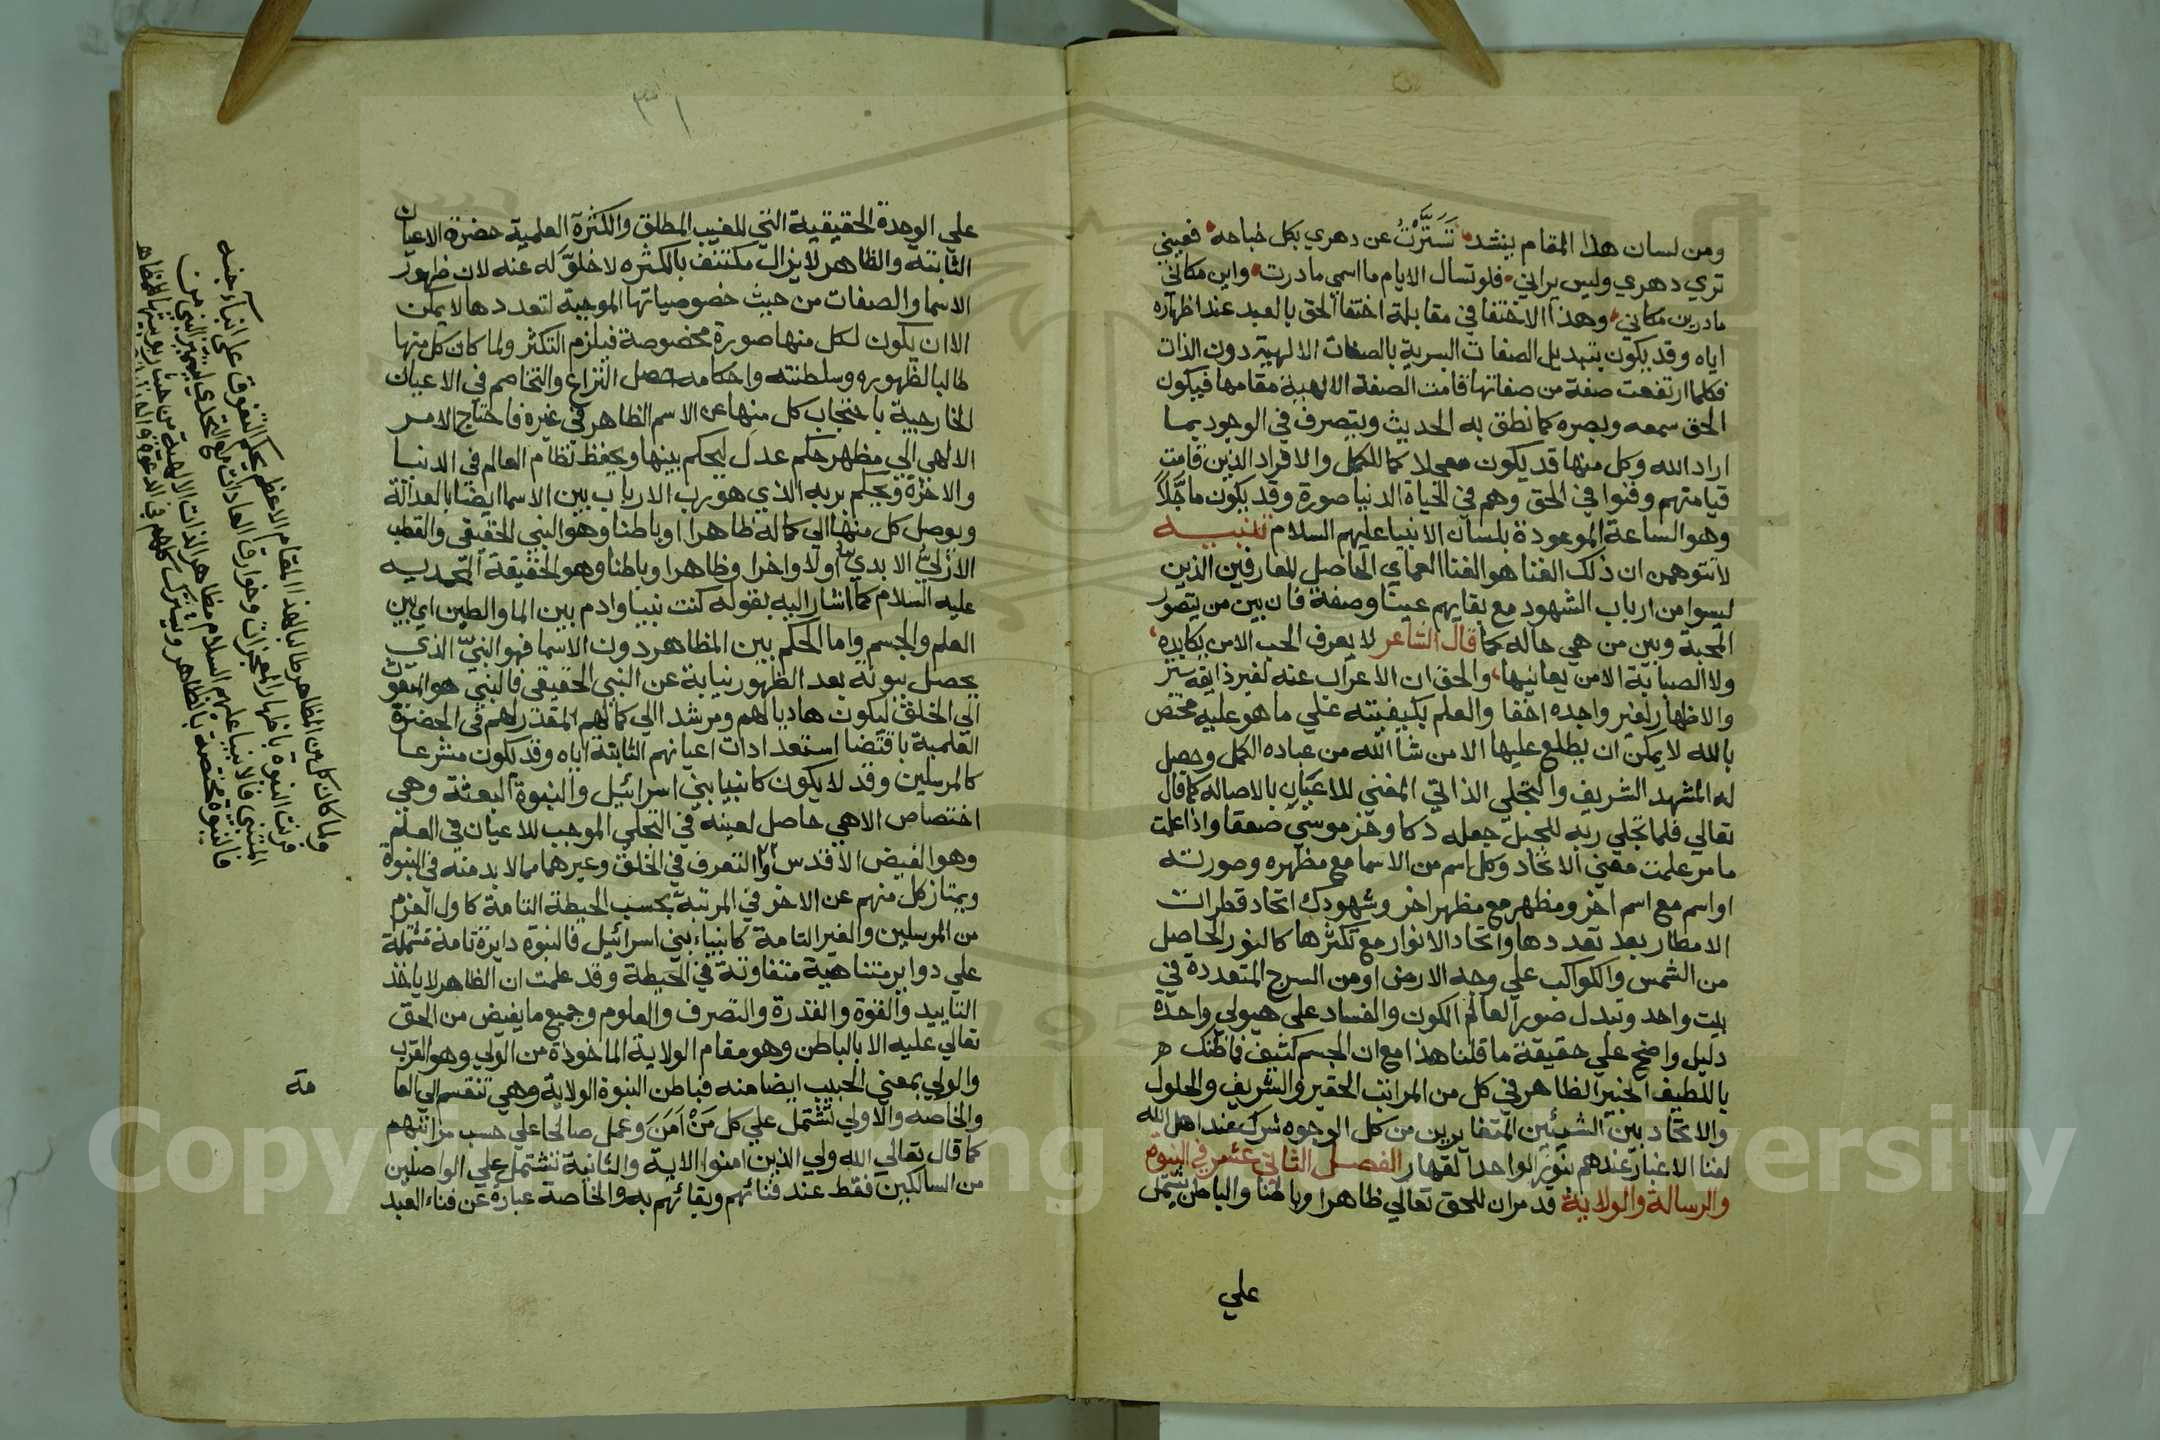 ومن لسان هذا المقام ينشد تَسَتَّرْتُ عن دهري بكل خباحه فعيني
تري دهري وليس يراني فلو تسال الايام ما اسمي ما درت واين مكاني
ما درين مكاني وهذا الاختفا في مقابلة اختفا الحق بالعبد عند اظهاره
اياه وقد يكون بتبديل الصفات البسرية بالصفات الالهية دون الذات
فكلما ارتفعت صفة من صفاتها قامت الصفة الالهية مقامها فيكون
الحق سمعه وبصره كما نطق به الحديث ويتصرف في الوجود بما
اراد الله وكل منها قد يكون معجلا كما للكمل والافراد الذين قامت
قيامتهم وفنوا في الحق وهم في الحياة الدنيا صورة وقد يكون ماجّلاً
وهو الساعة الموعودة بلسان الانبيا عليهم السلام تنبيه
لا تتوهمن ان ذلك الفنا هو الفنا العماي الحاصل للعارفين الذين
ليسوا من ارباب الشهود مع بقايهم عينا وصفة فان بين من يتصور
المحبة وبين من هي حاله كما قال الشاعر لا يعرف الحب الا من يكابده
ولا الصبابة الا من يعانيها والحق ان الاعراب عنه لغير ذايقه ستر
والاظهار لغير واجده اخفا والعلم بكيفيته علي ما هو عليه مختص
بالله لا يمكن ان يطلع عليها الا من شا الله من عباده الكمل وحصل
له المشهد الشريف والتجلي الذاتي المفني للاعيان بالاصاله كما قال
تعالي فلما تجلي ربه للجبل جعله دكا وخر موسي صعقا واذا علمت
ما مر علمت معني الاتحاد وكل اسم من الاسما مع مظهره وصورته
او اسم مع اسم اخر ومظهر مع مظهر اخر وشهودك اتحاد قطرات
الامطار بعد تعددها واتحاد الانوار مع تكثرها كالنور الحاصل
من الشمس والكواكب علي وجه الارض او من السرج المتعددة في
بيت واحد وتبدل صور العالم الكون والفساد علي هيولي واحدة
دليل واضح علي حقيقة ما قلنا هذا مع ان الجسم كثيف فما ظنك
باللطيف الخبير الظاهر في كل من المراتب الحقير والشريف والحلول
والاتحاد بين الشيئين المتغايرين من كل الوجوه شرك عند اهل الله
لفنا الاغيار عندهم بنور الواحد القهار الفصل الثاني عشر في النبوة
والرسالة والولاية قد مر ان للحق تعالي ظاهرا وباطنا والباطن يشتمل
علي
٣١
علي الوحدة الحقيقية التي للغيب المطلق والكثرة العلمية حضرة الاعيان
الثابتة والظاهر لا يزال مكتنف بالكثره لا خلوّ له عنه لان ظهور
الاسما والصفات من حيث خصوصياتها الموجبة لتعددها لا يمكن
الا ان يكون لكل منها صورة مخصوصة فيلزم التكثر ولما كان كل منها
طالبا لظهوره وسلطنته واحكامه حصل النزاع والتخاصم في الاعيان
الخارجية باحتجاب كل منها عن الاسم الظاهر في غيره فاحتاج الامر
الالهي الي مظهر حكم عدل ليحكم بينها ويحفظ نظام العالم في الدنيا
والاخرة ويحكم بربه الذي هو رب الارباب بين الاسما ايضا بالعدالة
ويوصل كل منها الي كماله ظاهرا وباطنا وهو النبي الحقيقي والقطب
الازليّ الابدي اولا واخرا وظاهرا وباطنا وهو الحقيقة المحمديه
عليه السلام كما اشار اليه بقوله كنت نبيا وادم بين الما والطين اي بين
العلم والجسم واما الحكم بين المظاهر دون الاسما فهو النبيّ الذي
يحصل نبوته بعد الظهور نيابة عن النبي الحقيقي فالنبي هو المبعوث
الي الخلق ليكون هاديا لهم ومرشدا الي كمالهم المقدر لهم في الحضرة
العلمية باقتضا استعدادات اعيانهم الثابتة اياه وقد تكون مشرعا
كالمرسلين وقد لا يكون كانبيا بني اسرائيل والنبوة البعثة وهي
اختصاص الاهي حاصل لعينه في التجلي الموجب للاعيان في العلم
وهو الفيض الاقدس والتعرف في الخلق وغيرهما مما لا بد منه في النبوة
ويمتاز كل منهم عن الاخر في المرتبة بحسب الحيطة التامة كاولي العزم
من المرسلين والغير التامة كانبياء بني اسرائيل فالنبوة دايرة تامة مشتملة
علي دواير متناهية متفاوتة في الحيطة وقد علمت ان الظاهر لا ياخذ
التاييد والقوة والقدرة والتصرف والعلوم وجميع ما يفيض من الحق
تعالي عليه الا بالباطن وهو مقام الولاية الماخوذة من الولي وهو القرب
والولي بمعني الحبيب ايضا منه فباطن النبوة الولاية وهي تنقسم الي العا
مة
والخاصه والاولي تشتمل علي كل مَنْ اَمَنَ وعمل صالحا علي حسب مراتبهم
كما قال تعالي الله ولي الذين امنوا الاية والثانية تشتمل علي الواصلين
من السالكين فقط عند فنائهم وبقائهم به والخاصة عبارة عن فناء العبد
ولما كان كل من المظاهر طالبا لهذا المقام الاعظم بحكم التفوق علي ابناء جنسه
قرنت النبوة باظهار المعجزات وخوارق العادات مع التحدي ليتميز النبي من
المتنبي فالانبيا عليهم السلام مظاهر الذات الالهية من حيث ربوبيتها للمظاهر
فالنبوة مختصة بالظاهر ويشترك كلهم في الدعوة